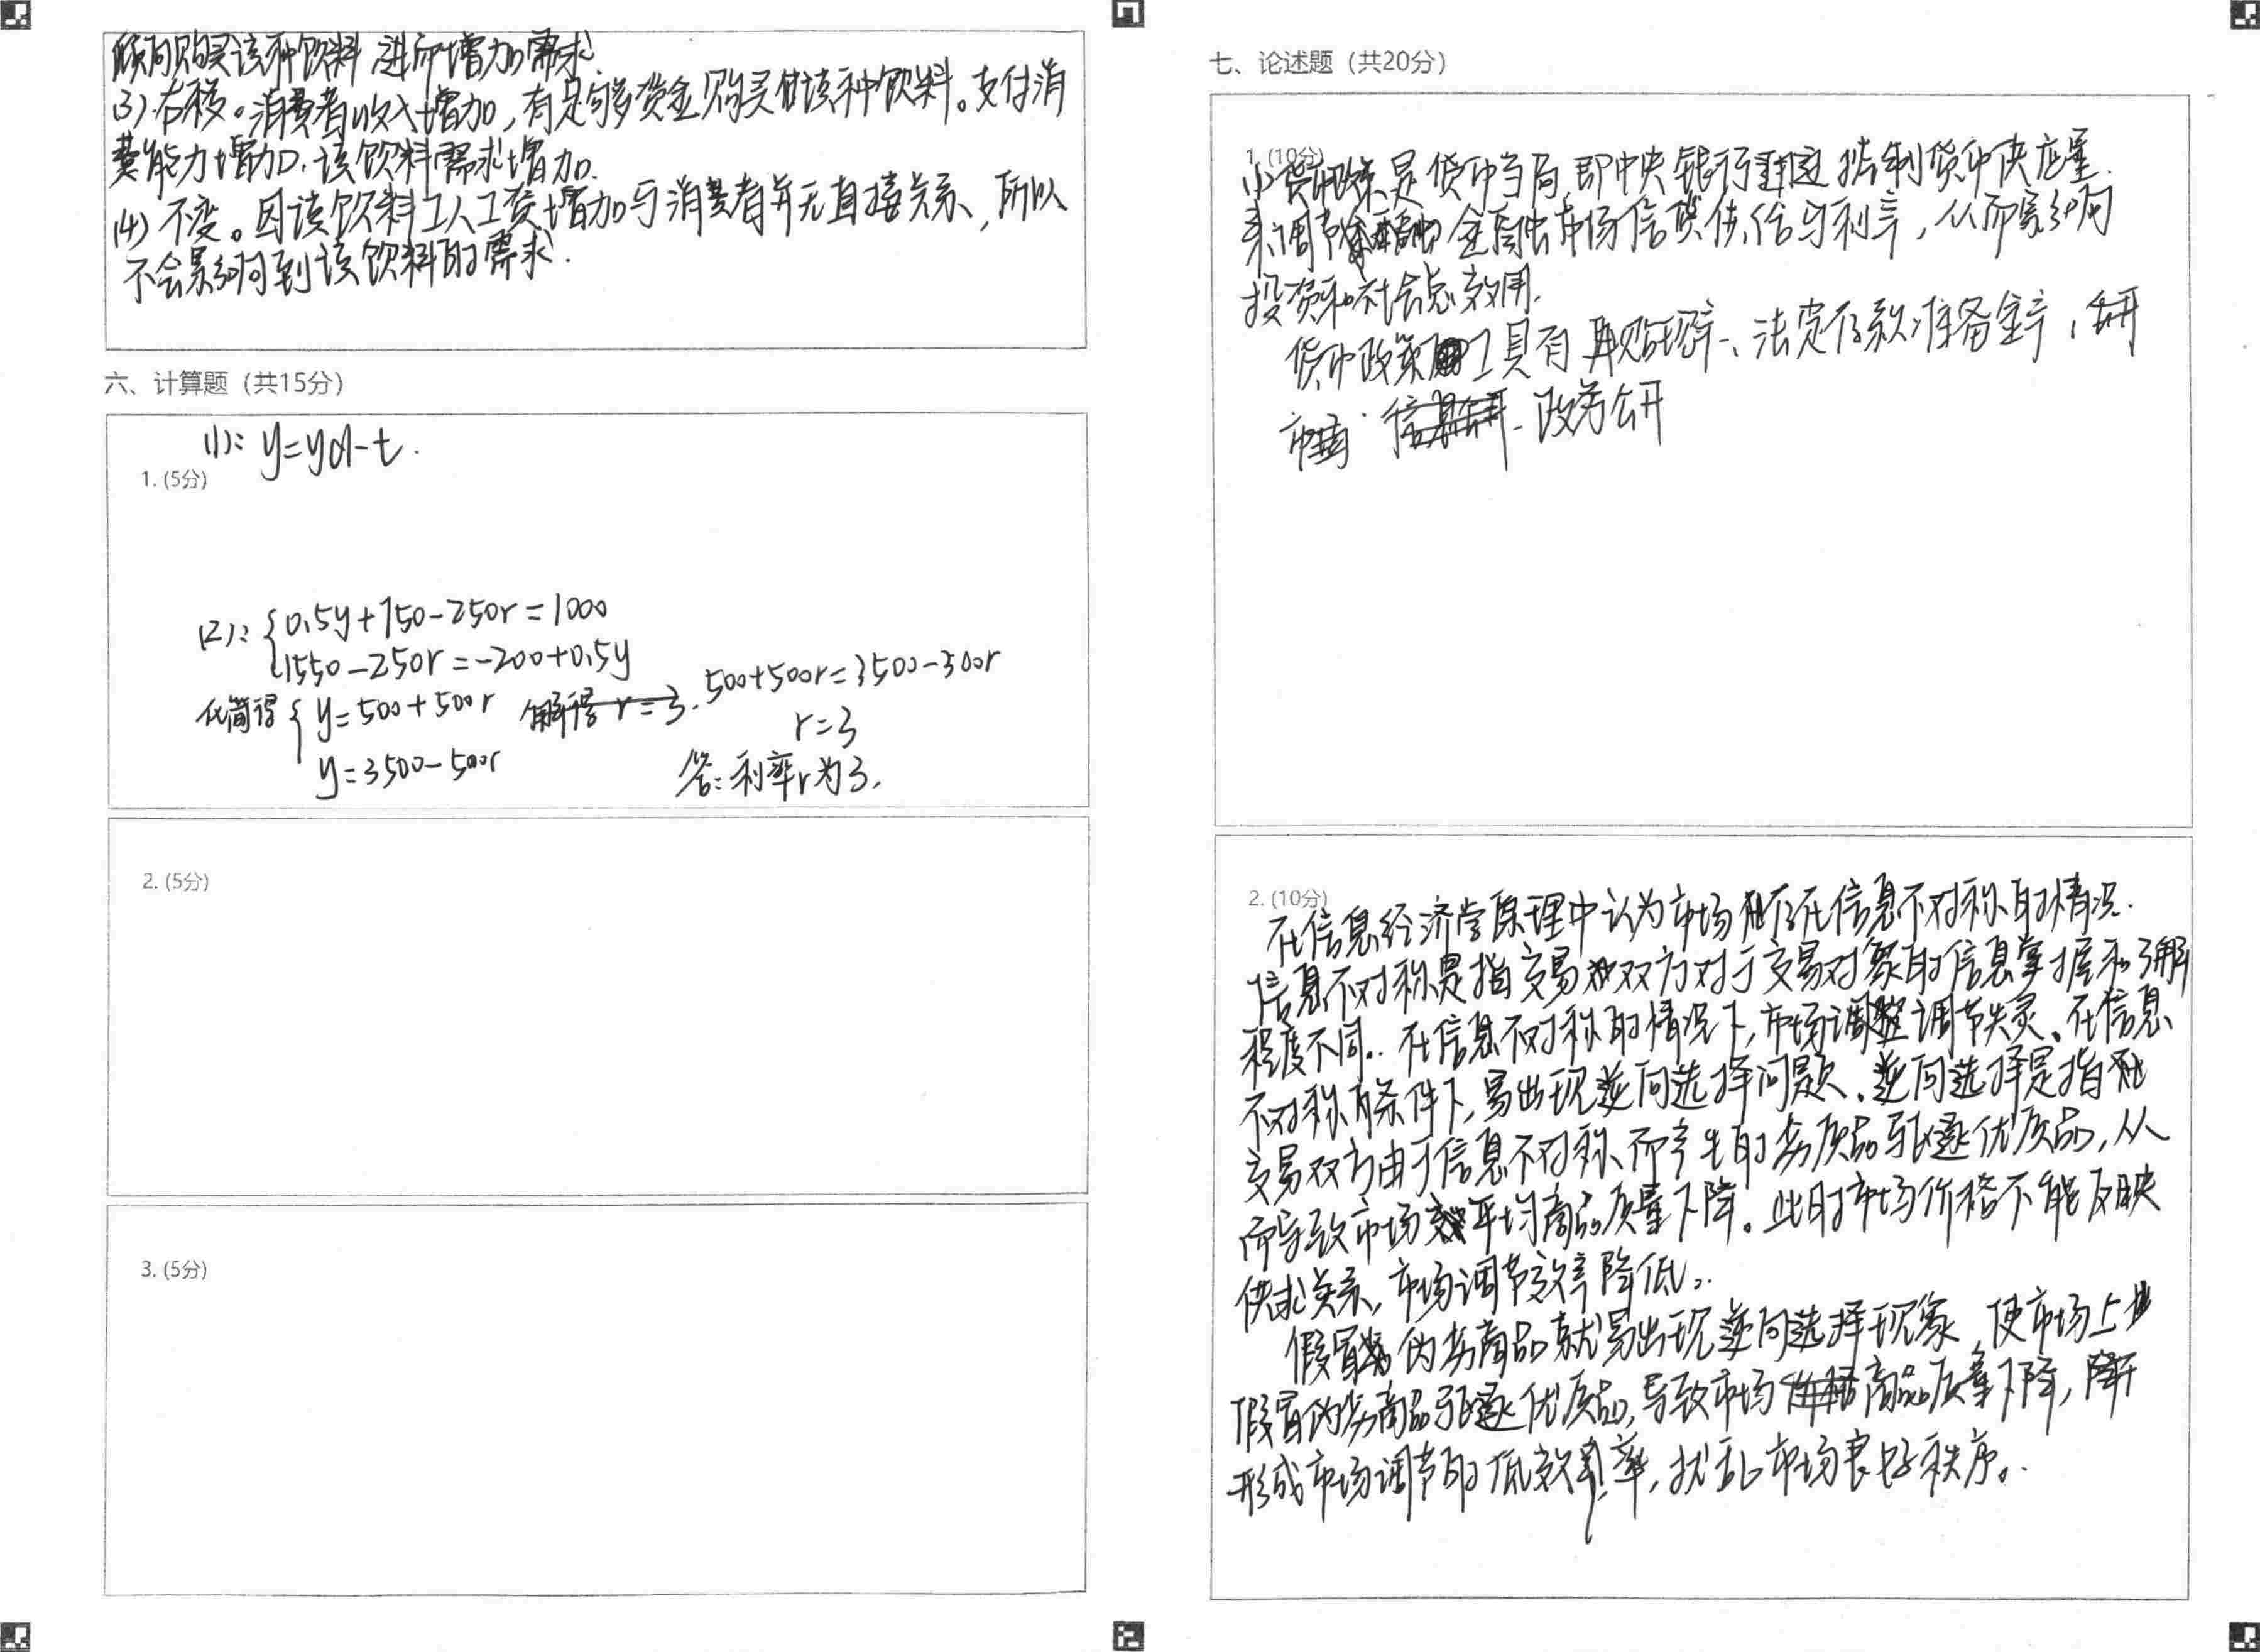 倾向购买该种饮料 进而增加需求.
(3) 右移。消费者收入增加,有足够多资金购买该种饮料。支付消
费能力增加,该饮料需求增加.
(4) 不变。因该饮料工人工资增加与消费者并无直接关系,所以
不会影响到该饮料的需求.
六、计算题(共15分)
(1): y=yd-t.
1. (5分)
(2): {0.5y+750-250r=1000
1550-250r=-200+0.5y
化简得 { y=500+500r 解得 r=3. 500+500r=3500-500r
y=3500-500r r=3
答:利率r为3.
2. (5分)
3. (5分)
七、论述题(共20分)
1. (10分)
(1)货币政策是货币当局,即中央银行通过控制货币供应量.
来调节金融市场信贷供给与利率,从而影响
投资和社会总效用.
货币政策工具有再贴现率、法定存款准备金率,公开
市 政务公开
2. (10分)
在信息经济学原理中认为市场存在信息不对称的情况.
信息不对称是指交易双方对于交易对象的信息掌握和了解
程度不同.. 在信息不对称的情况下,市场调节失灵。在信息
不对称条件下,易出现逆向选择问题、逆向选择是指
交易双方由于信息不对称而产生的劣质品驱逐优质品,从
而导致市场平均商品质量下降。此时市场价格不能反映
供求关系,市场调节效率降低。.
假冒伪劣商品就易出现逆向选择现象,使市场上
假冒伪劣商品驱逐优质品,导致市场商品质量下降,
形成市场调节的低效率,扰乱市场良好秩序。.